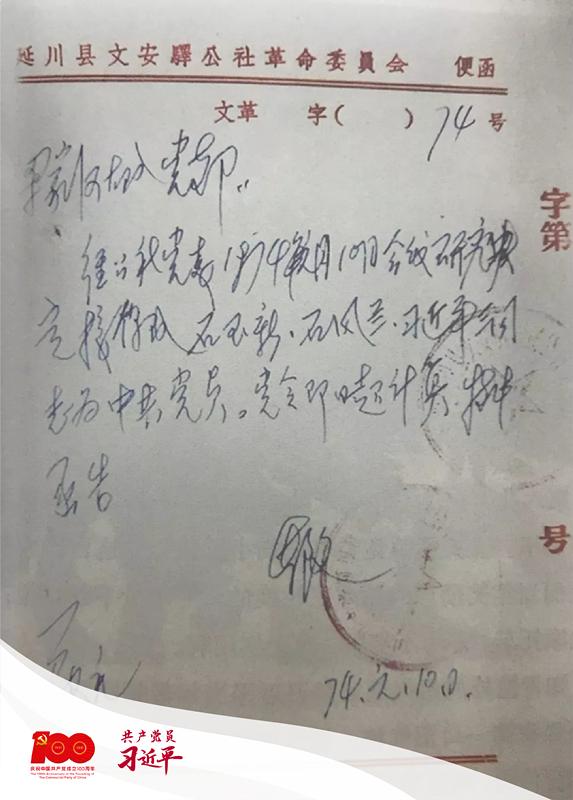 延川县文安驛公社革命委員会 便函
文革 字( ) 74 号
党支部:
经公社党委1974年1月10日会议研究决
定接收 石玉新、石凤兰、习近平同
志为中共党员。党令即日起计算,特此
函告
74.元.10日.
字第
号
100
1921
2021
庆祝中国共产党成立100周年
The 100th Anniversary of the Founding of
The Communist Party of China
共产党员
习近平